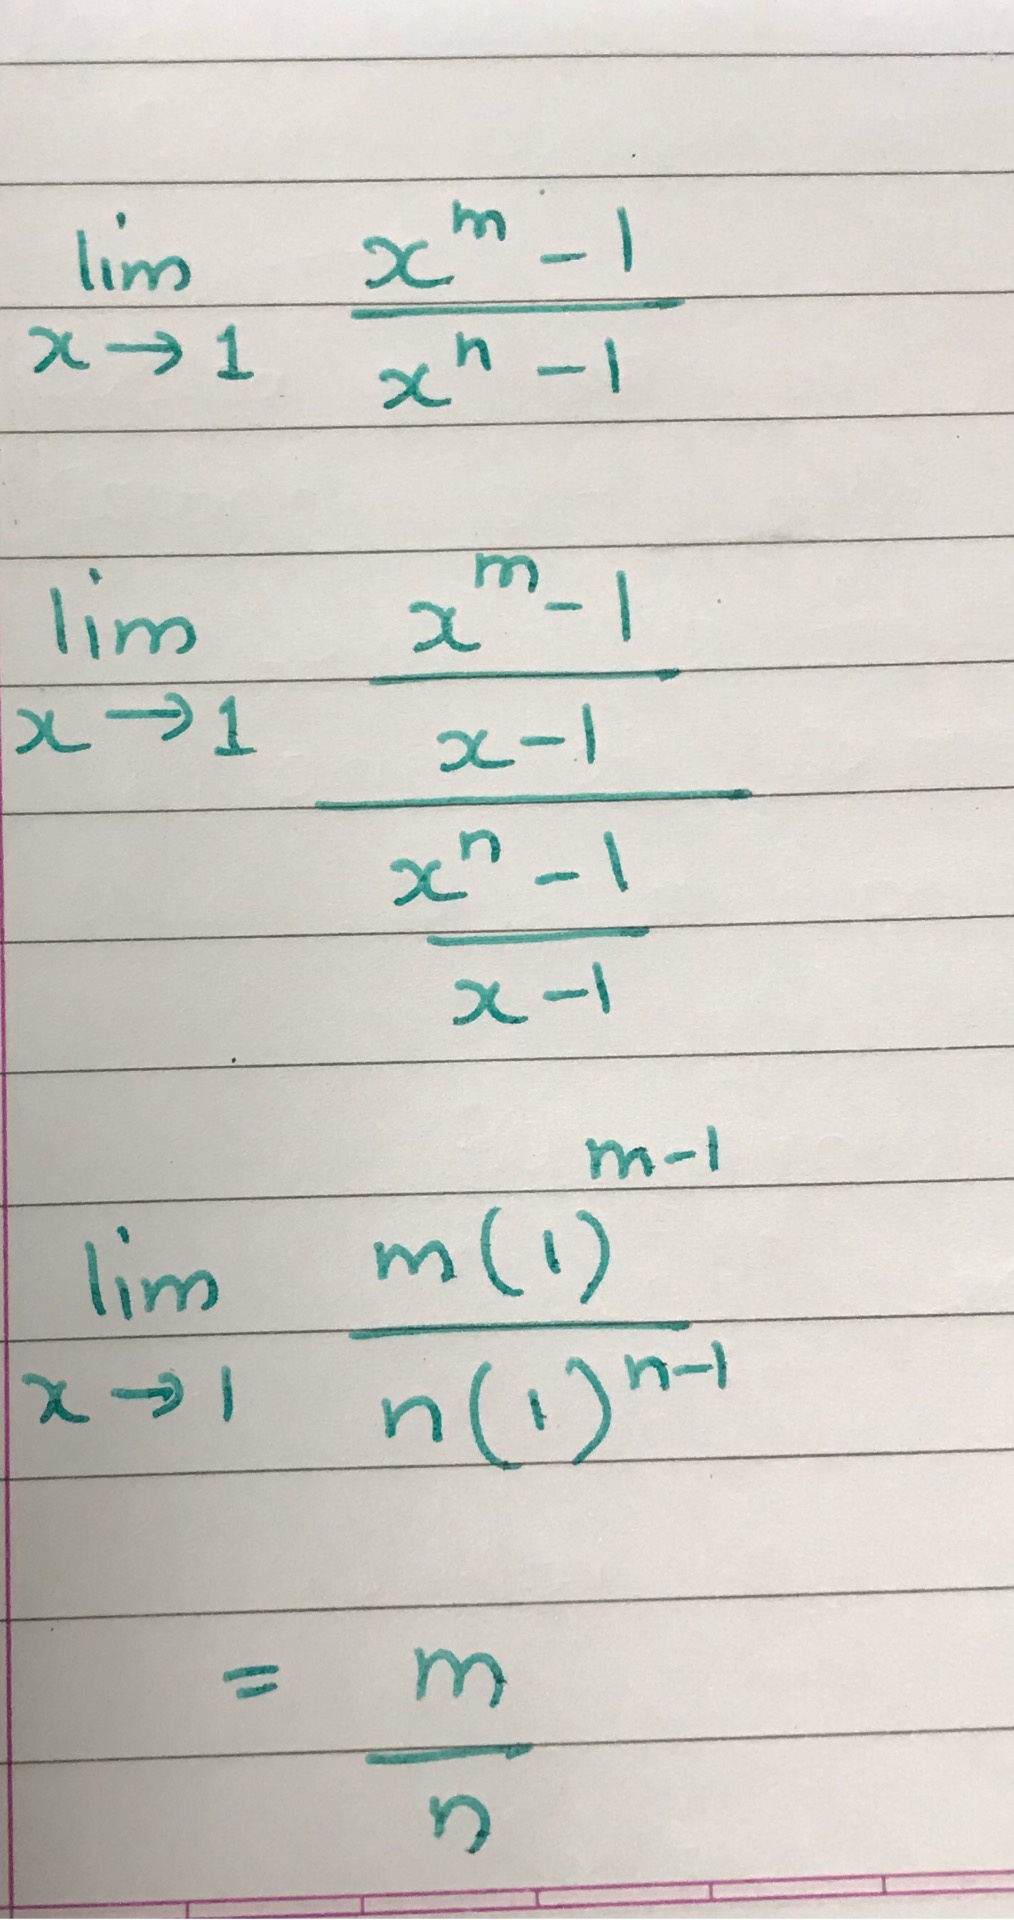 lim x→1 (x^m - 1)/(x^n - 1)
lim x→1 ((x^m - 1)/(x - 1))/((x^n - 1)/(x - 1))
lim x→1 (m(1)^(m-1))/(n(1)^(n-1))
= m/n